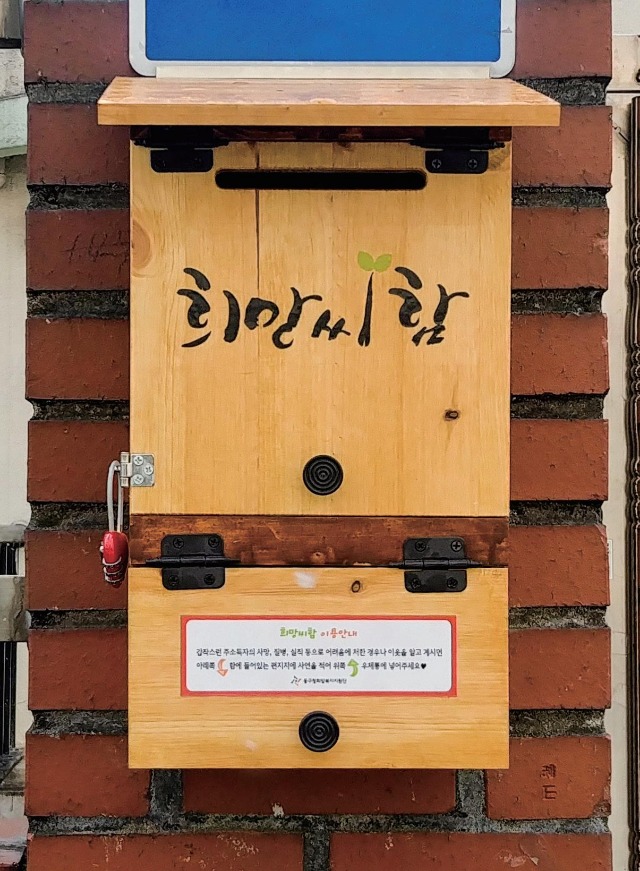 희망씨함
희망씨함 이용안내
갑작스런 주소득자의 사망, 질병, 실직 등으로 어려움에 처한 경우나 이웃을 알고 계시면
아래쪽 함에 들어있는 편지지에 사연을 적어 위쪽 우체통에 넣어주세요♥